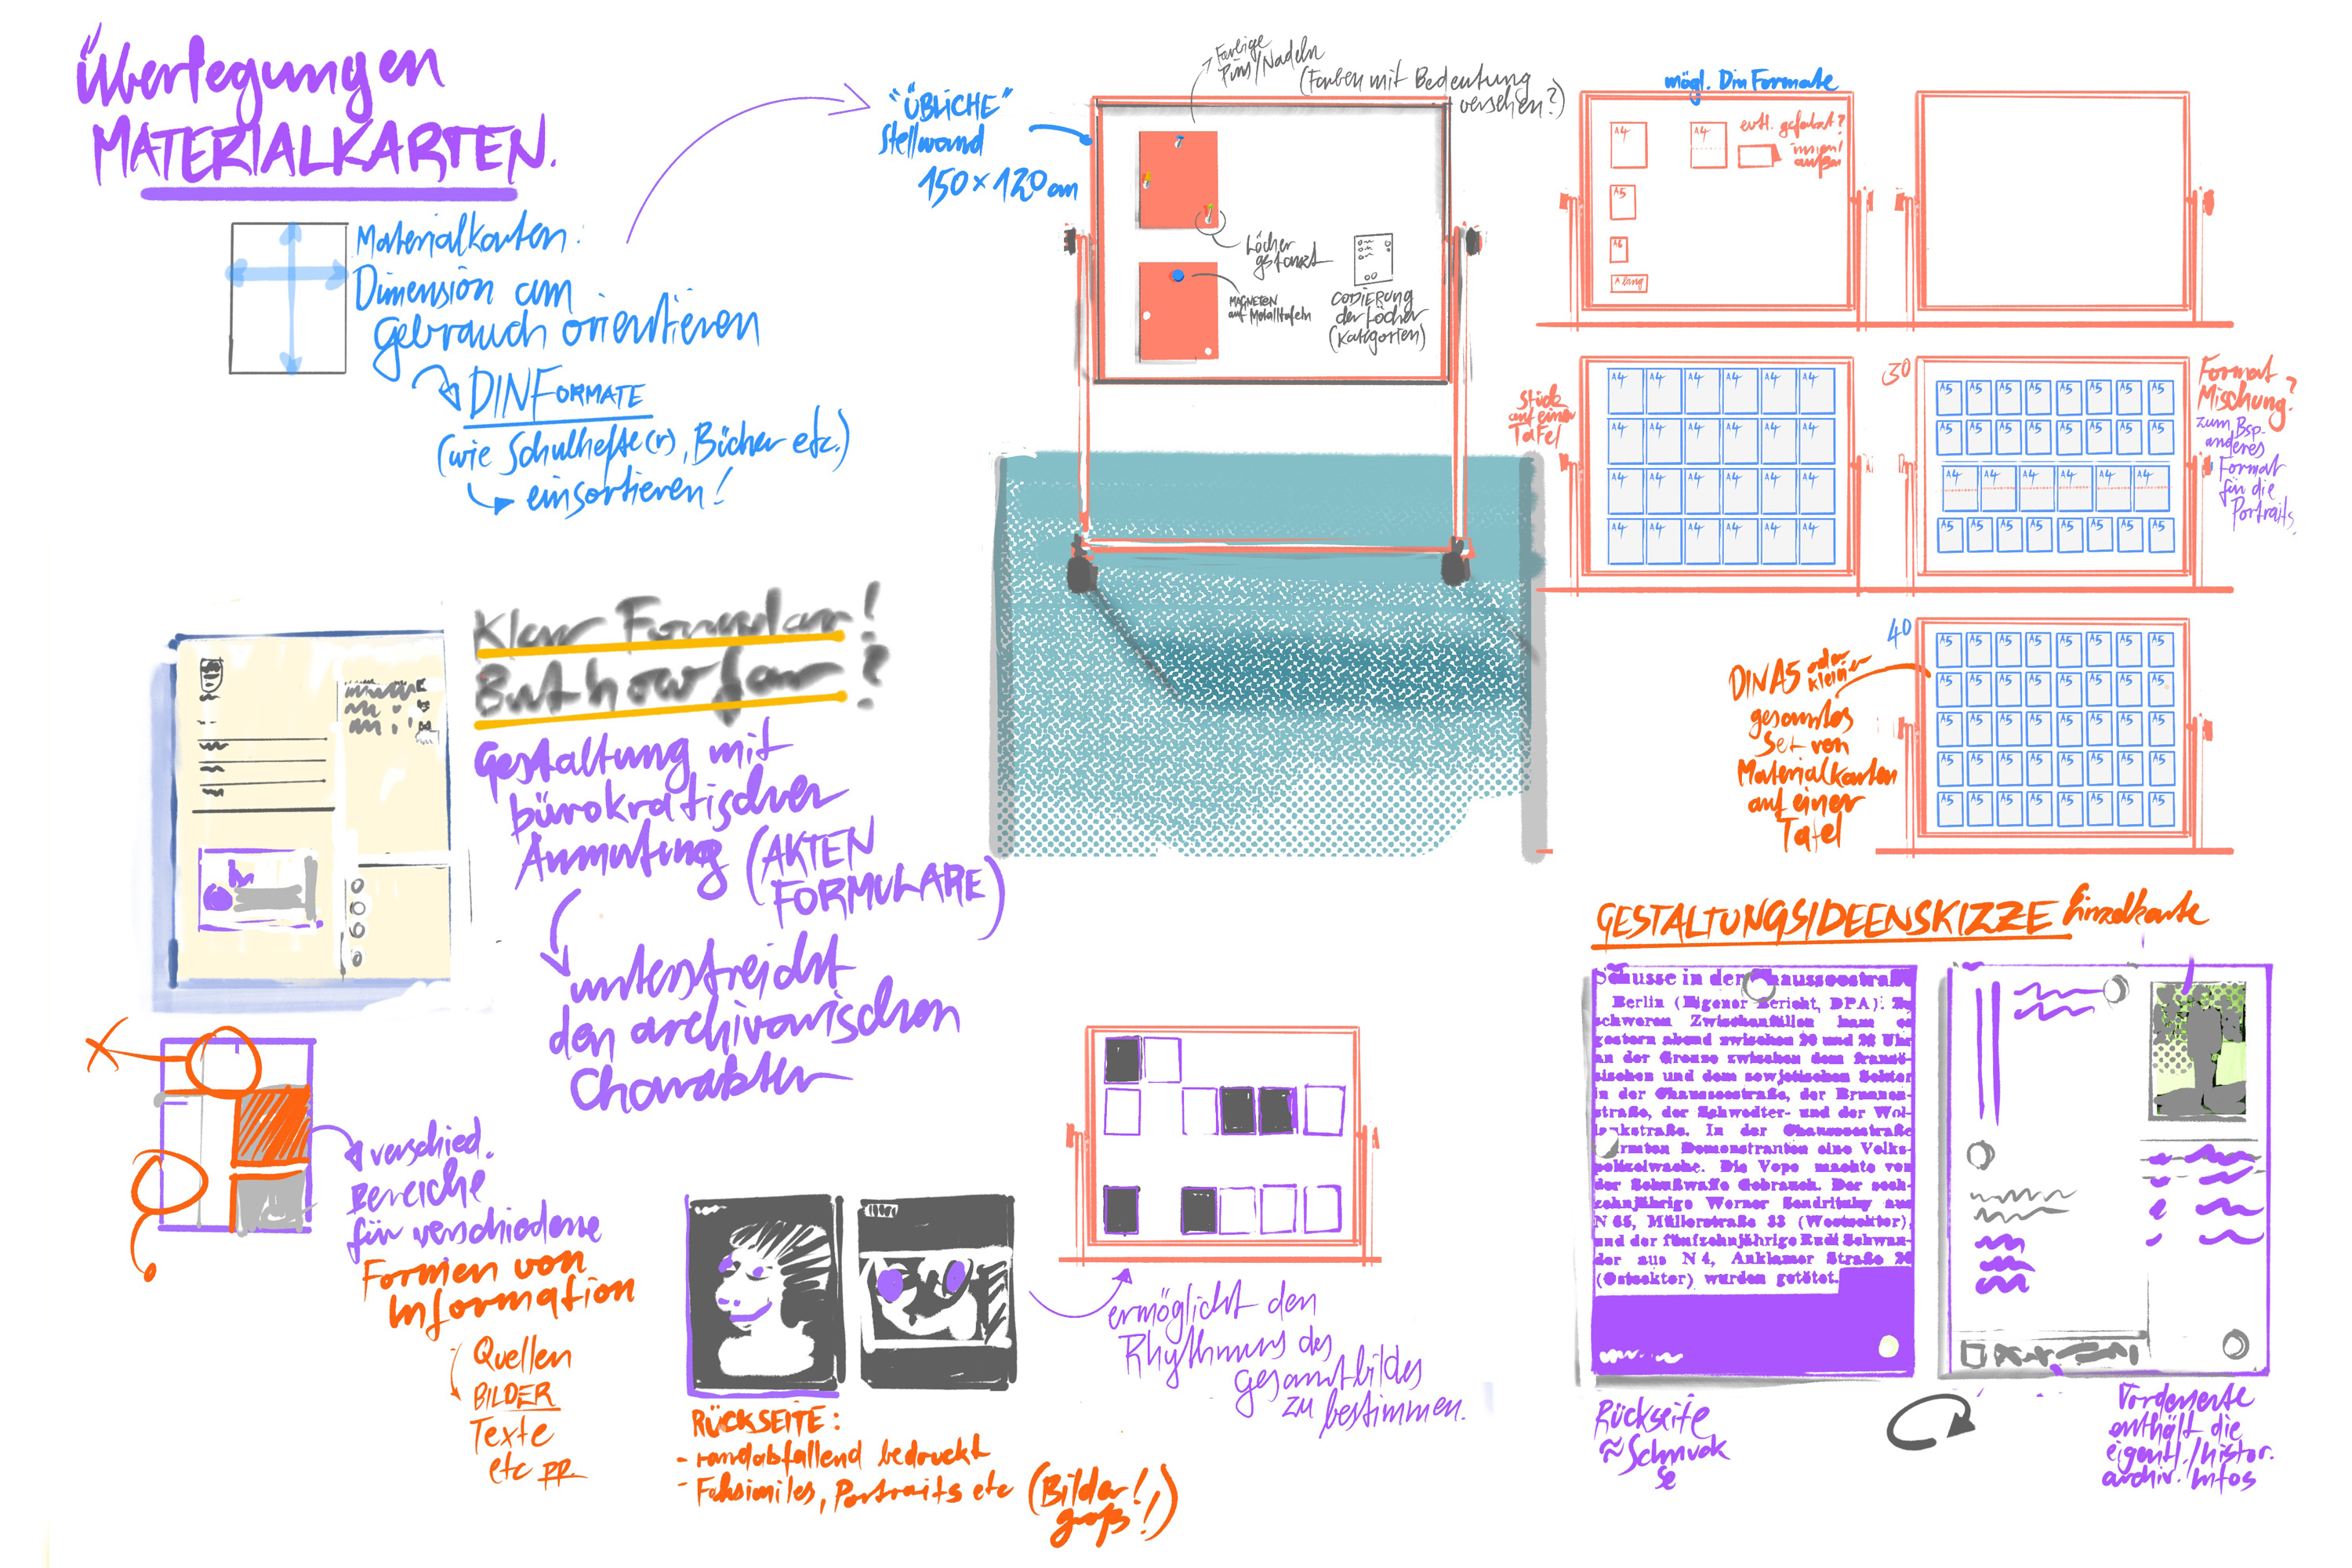 Überlegungen
MATERIALKARTEN.
Materialkarten:
Dimension am
Gebrauch orientieren
DIN FORMATE
(wie Schulhefte(r), Bücher etc.)
einsortieren!
"ÜBLICHE"
Stellwand
150 × 120 cm
Farbige
Pins/Nadeln
(Farben mit Bedeutung
versehen?)
Löcher
gestanzt
MAGNETEN
auf Metalltafeln
CODIERUNG
der Löcher
(Kategorien)
mögl. Din Formate
A4
A4
evtl. gefalzt?
innen/
außen
A5
A6
A lang
Stück
auf einer
Tafel
A4 A4 A4 A4 A4 A4
A4 A4 A4 A4 A4 A4
A4 A4 A4 A4 A4 A4
A4 A4 A4 A4 A4 A4
30
A5 A5 A5 A5 A5 A5 A5 A5
A5 A5 A5 A5 A5 A5 A5 A5
A4 A4 A4 A4 A4 A4
A5 A5 A5 A5 A5 A5 A5 A5
Format
Mischung?
zum Bsp.
anderes
Format
für die
Portraits
40
A5 A5 A5 A5 A5 A5 A5 A5
A5 A5 A5 A5 A5 A5 A5 A5
A5 A5 A5 A5 A5 A5 A5 A5
A5 A5 A5 A5 A5 A5 A5 A5
A5 A5 A5 A5 A5 A5 A5 A5
DIN A5 oder
klein
gesamtes
Set von
Materialkarten
auf einer
Tafel
Klar Formular!
But how far?
Gestaltung mit
bürokratischer
Anmutung (AKTEN
FORMULARE)
unterstreicht
den archivarischen
Charakter
verschied.
Bereiche
für verschiedene
Formen von
Information
Quellen
BILDER
Texte
etc pp.
RÜCKSEITE:
- randabfallend bedruckt
- Faksimiles, Portraits etc (Bilder!
groß!!)
ermöglicht den
Rhythmus des
Gesamtbildes
zu bestimmen.
GESTALTUNGSIDEENSKIZZE Einzelkarte
Schüsse in der Chausseestraße
Berlin (Eigener Bericht, DPA). Zu
schweren Zwischenfällen kam es
gestern abend zwischen 20 und 22 Uhr
an der Grenze zwischen dem franzö-
sischen und dem sowjetischen Sektor
in der Chausseestraße, der Brunnen-
straße, der Schwedter- und der Wol-
lankstraße. In der Chausseestraße
stürmten Demonstranten eine Volks-
polizeiwache. Die Vopo machte von
der Schußwaffe Gebrauch. Der sech-
zehnjährige Werner Sendritzky aus
N 65, Müllerstraße 33 (Westsektor),
und der fünfzehnjährige Rudi Schwan-
der aus N 4, Anklamer Straße
(Ostsektor) wurden getötet.
Rückseite
≈ Schmuck
se
Vorderseite
enthält die
eigentl./histor.
archiv. Infos